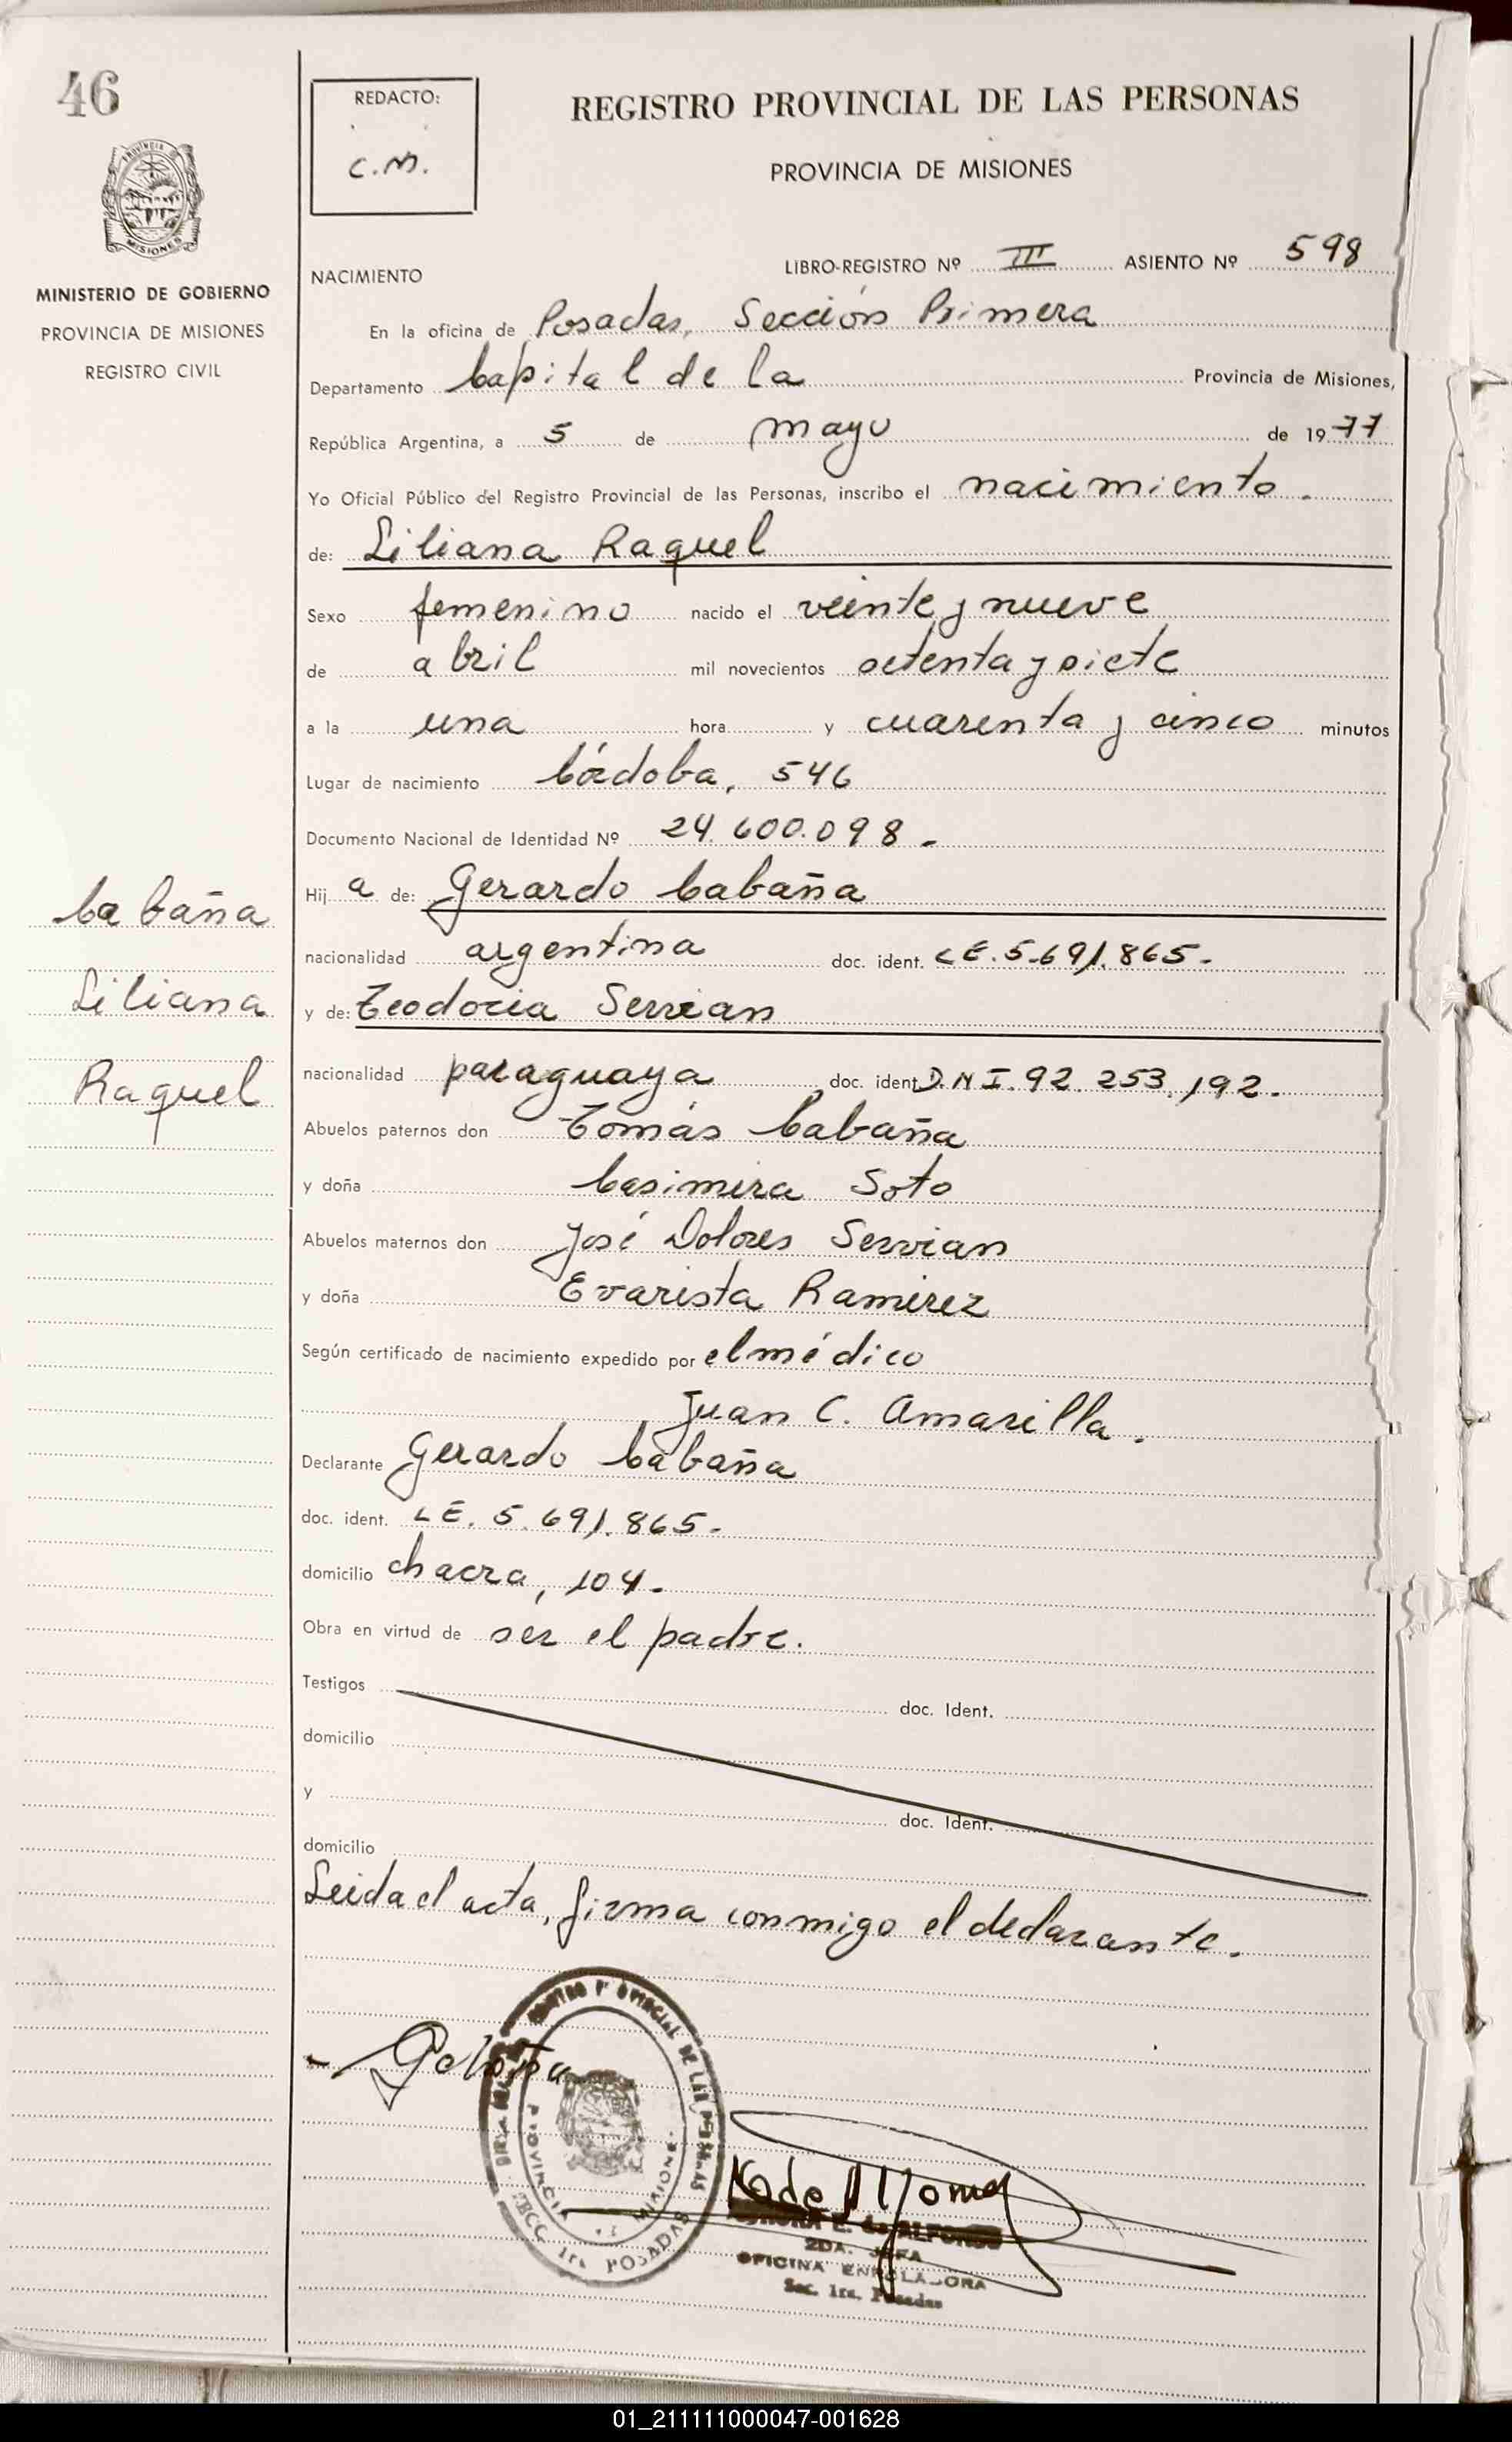 46
REDACTO:
C.M.
REGISTRO PROVINCIAL DE LAS PERSONAS
PROVINCIA DE MISIONES
PROVINCIA
MISIONES
MINISTERIO DE GOBIERNO
PROVINCIA DE MISIONES
REGISTRO CIVIL
LIBRO-REGISTRO Nº III ASIENTO Nº 598
NACIMIENTO
En la oficina de Posadas, Sección Primera
Departamento Capital de la Provincia de Misiones,
República Argentina, a 5 de mayo de 1977
Yo Oficial Público del Registro Provincial de las Personas, inscribo el nacimiento.
de: Liliana Raquel
Sexo femenino nacido el veinte y nueve
de abril mil novecientos setenta y siete
a la una hora y cuarenta y cinco minutos
Lugar de nacimiento Córdoba, 546
Documento Nacional de Identidad Nº 24.600.098.-
Hija de: Gerardo Cabaña
nacionalidad argentina doc. ident. L.E. 5.691.865.-
y de: Teodocia Servian
nacionalidad paraguaya doc. ident. D.N.I. 92.253.192.-
Abuelos paternos don Tomás Cabaña
y doña Casimira Soto
Abuelos maternos don José Dolores Servian
y doña Evarista Ramirez
Según certificado de nacimiento expedido por el médico
Juan C. Amarilla.
Declarante Gerardo Cabaña
doc. ident. L.E. 5.691.865.-
domicilio chacra, 104.-
Obra en virtud de ser el padre.
Testigos doc. Ident.
domicilio
y doc. Ident.
domicilio
Leida el acta, firma conmigo el declarante.
Cabaña
Liliana
Raquel
PROVINCIAL DE LAS PERSONAS
PROVINCIA MISIONES
SECC. 1ra POSADAS
E. de ALFONSO
2DA. JEFA
OFICINA ENROLADORA
Sec. 1ra. Posadas
01_211111000047-001628